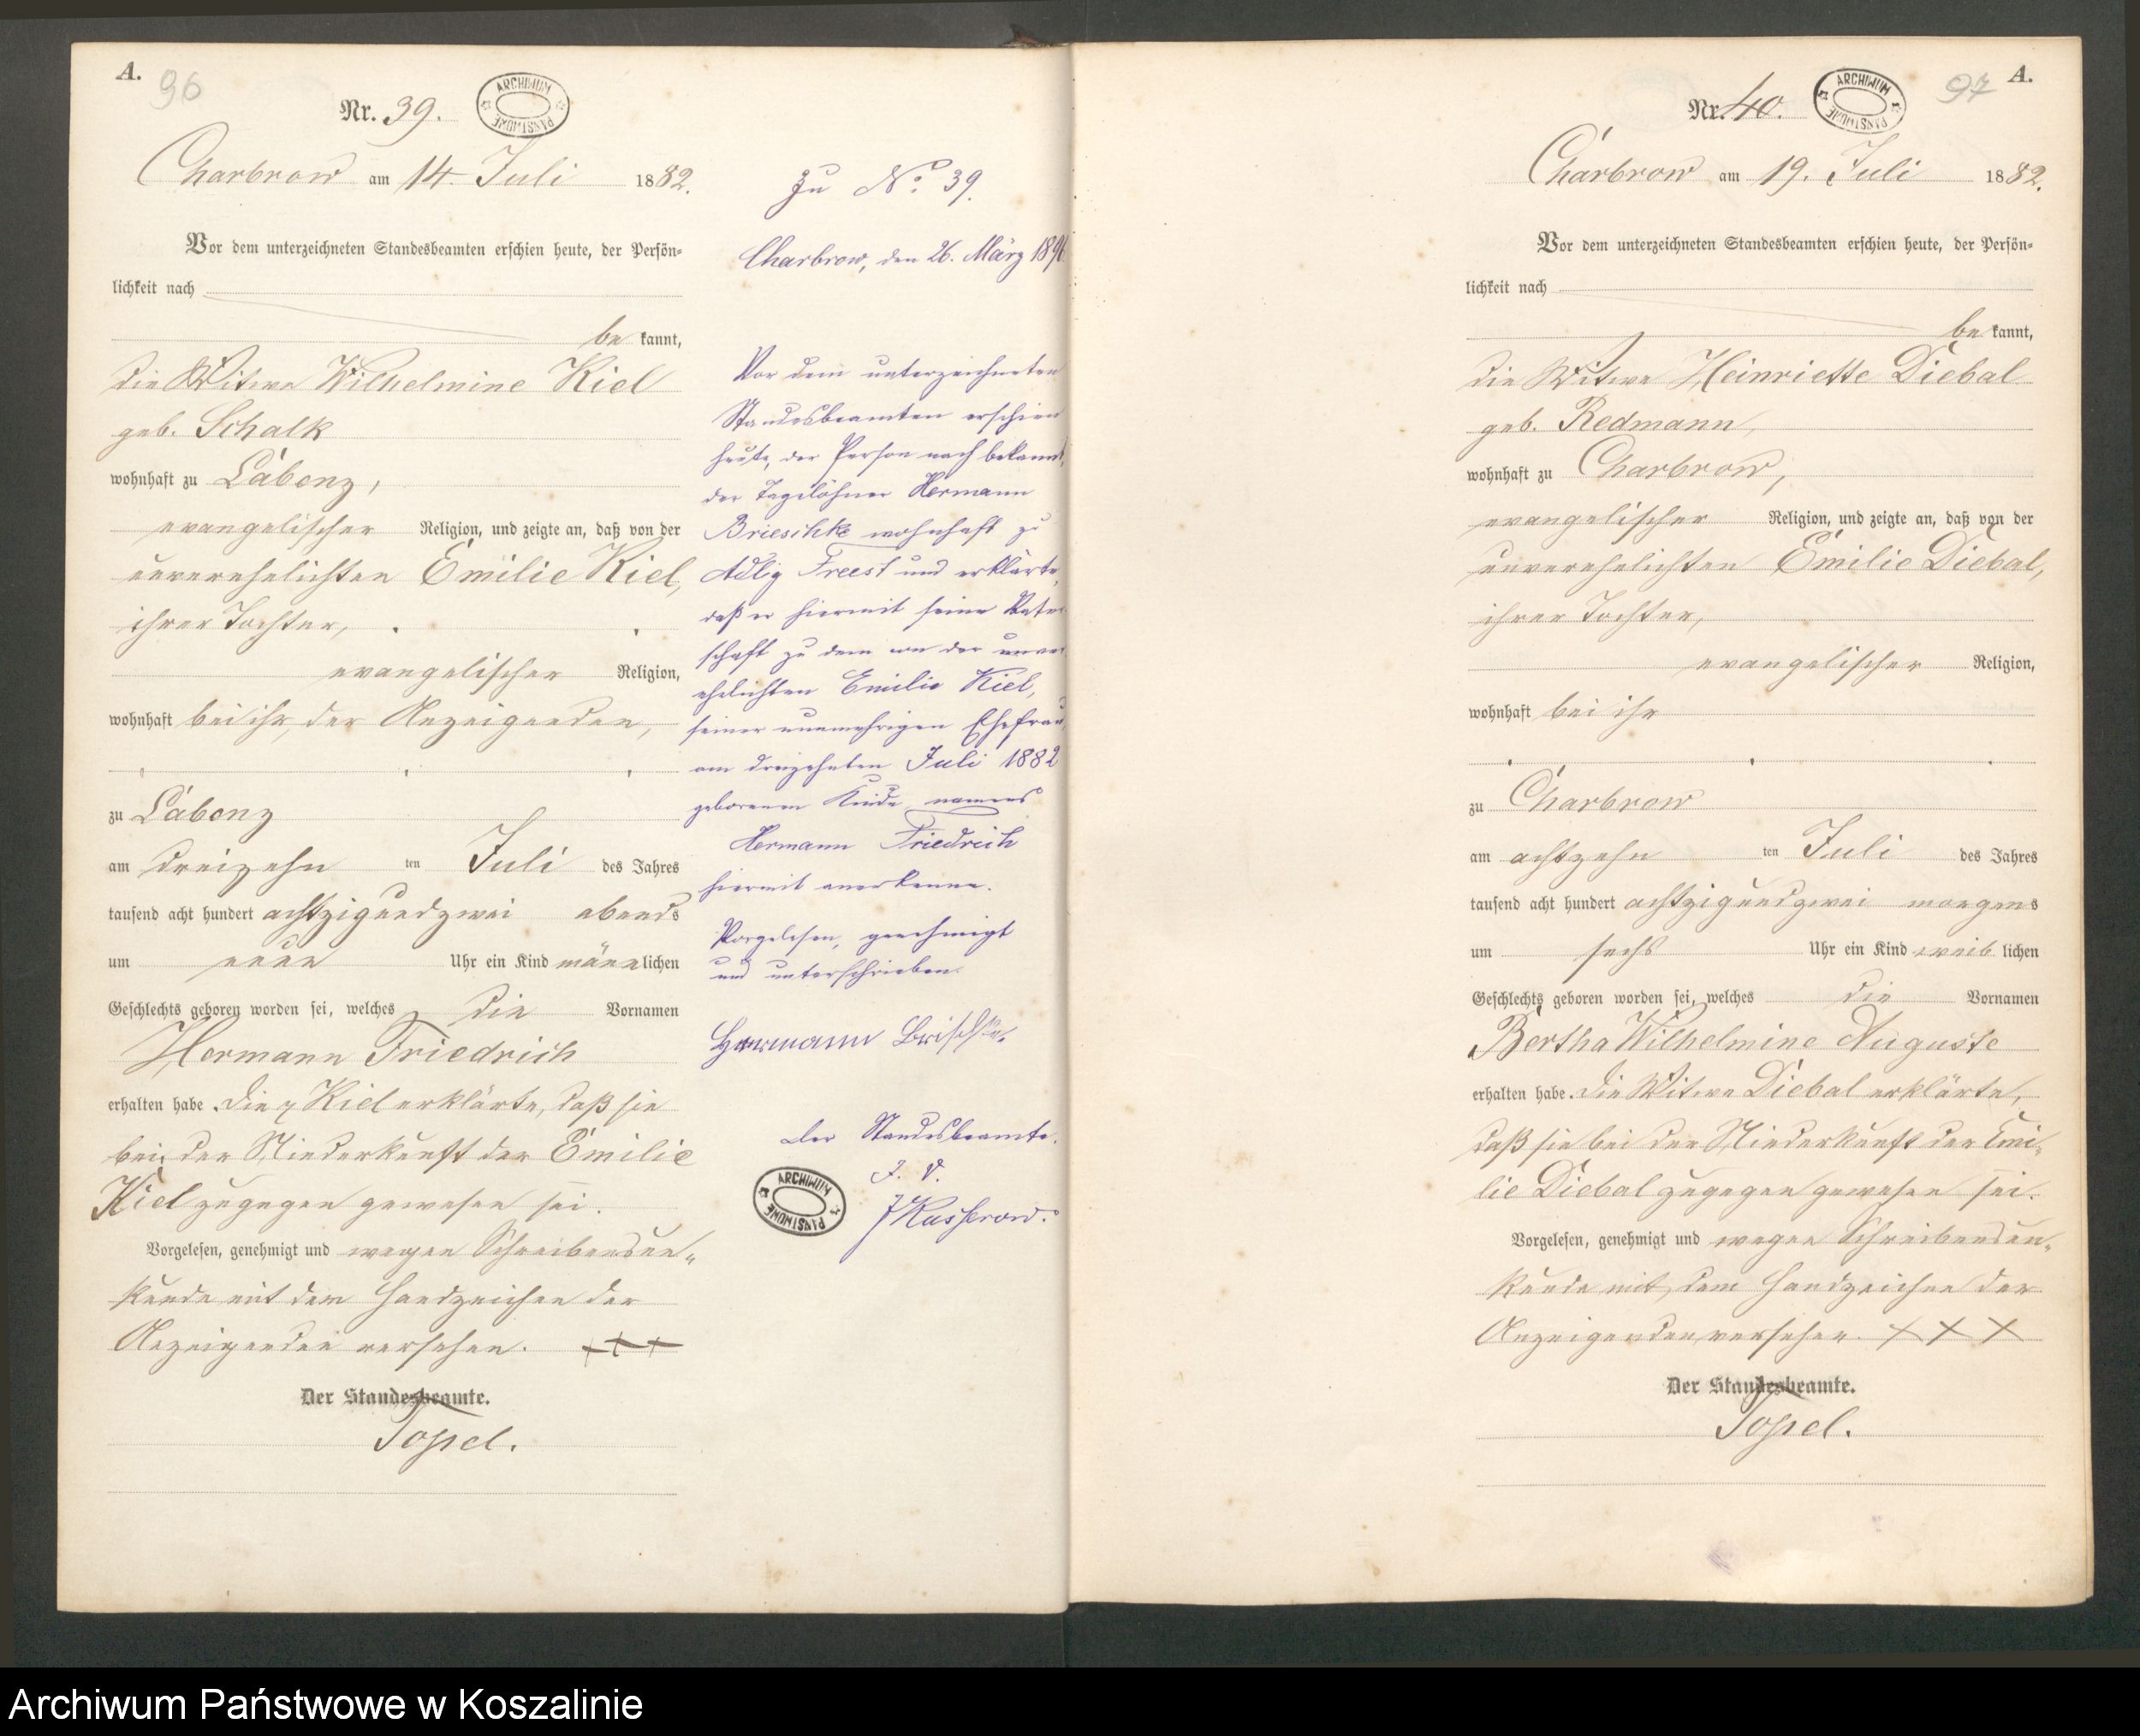 A.
96
Nr. 39.
ARCHIWUM PAŃSTWOWE
Charbrow am 14. Juli 1882.
Vor dem unterzeichneten Standesbeamten erschien heute, der Persön-
lichkeit nach
be kannt,
die Witwe Wilhelmine Kiel
geb. Schalk
wohnhaft zu Labenz,
evangelischer Religion, und zeigte an, daß von der
unverehelichten Emilie Kiel,
ihrer Tochter,
evangelischer Religion,
wohnhaft bei ihr, der Anzeigenden,
zu Labenz
am dreizehn ten Juli des Jahres
tausend acht hundert achtzigundzwei abends
um neun Uhr ein Kind männlichen
Geschlechts geboren worden sei, welches die Vornamen
Hermann Friedrich
erhalten habe. Die Kiel erklärte, daß sie
bei der Niederkunft der Emilie
Kiel zugegen gewesen sei.
Vorgelesen, genehmigt und wegen Schreibensun-
kunde mit dem Handzeichen der
Anzeigenden versehen. +++
Der Standesbeamte.
Topel.
Zu No. 39.
Charbrow, den 26. März 189
Vor dem unterzeichneten
Standesbeamten erschien
heute, der Person nach bekannt,
der Tagelöhner Hermann
Brieschke wohnhaft zu
Adlig Freest und erklärte,
daß er hiermit seine Vater
schaft zu dem von der unver
ehelichten Emilie Kiel,
seiner nunmehrigen Ehefrau,
am dreizehnten Juli 1882
geborenen Kinde namens
Hermann Friedrich
hiermit anerkenne.
Vorgelesen, genehmigt
und unterschrieben.
Hermann Brischke.
Der Standesbeamte.
I. V.
ARCHIWUM PAŃSTWOWE
JKusserow.
A.
97
Nr. 40.
ARCHIWUM PAŃSTWOWE
Charbrow am 19. Juli 1882.
Vor dem unterzeichneten Standesbeamten erschien heute, der Persön-
lichkeit nach
be kannt,
die Witwe Heinriette Diebal
geb. Redmann,
wohnhaft zu Charbrow,
evangelischer Religion, und zeigte an, daß von der
unverehelichten Emilie Diebal,
ihrer Tochter,
evangelischer Religion,
wohnhaft bei ihr
zu Charbrow
am achtzehn ten Juli des Jahres
tausend acht hundert achtzigundzwei morgens
um sechs Uhr ein Kind weib lichen
Geschlechts geboren worden sei, welches die Vornamen
Bertha Wilhelmine Auguste
erhalten habe. Die Witwe Diebal erklärte,
daß sie bei der Niederkunft der Emi-
lie Diebal zugegen gewesen sei.
Vorgelesen, genehmigt und wegen Schreibensun-
kunde mit dem Handzeichen der
Anzeigenden versehen. XXX
Der Standesbeamte.
Topel.
Archiwum Państwowe w Koszalinie